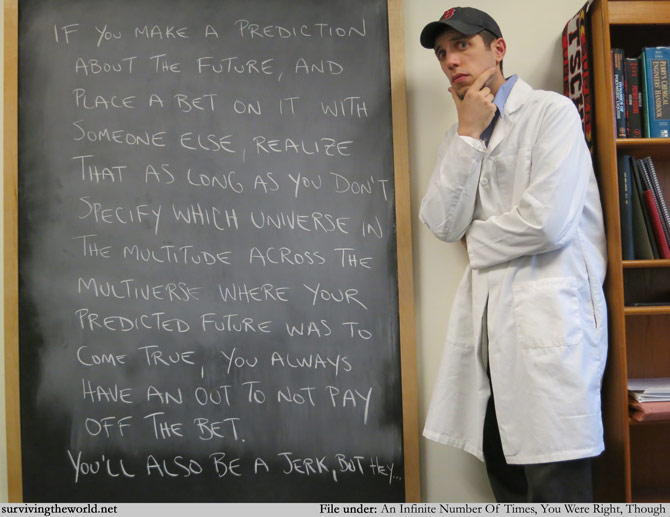 IF YOU MAKE A PREDICTION
ABOUT THE FUTURE, AND
PLACE A BET ON IT WITH
SOMEONE ELSE, REALIZE
THAT AS LONG AS YOU DON'T
SPECIFY WHICH UNIVERSE IN
THE MULTITUDE ACROSS THE
MULTIVERSE WHERE YOUR
PREDICTED FUTURE WAS TO
COME TRUE, YOU ALWAYS
HAVE AN OUT TO NOT PAY
OFF THE BET.
YOU'LL ALSO BE A JERK, BUT HEY...
survivingtheworld.net
File under: An Infinite Number Of Times, You Were Right, Though